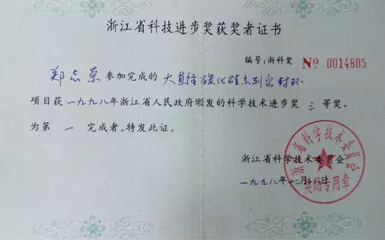 浙江省科技进步奖获奖者证书
编号:浙科奖 № 0014605
郑志荣 参加完成的 大直径碳化硅系列密封环
项目获一九九八年浙江省人民政府颁发的科学技术进步奖 三 等奖,
为第 一 完成者。特发此证。
浙江省科学技术委员会
一九九八年十二月
浙江省科学技术委员会
奖励专用章